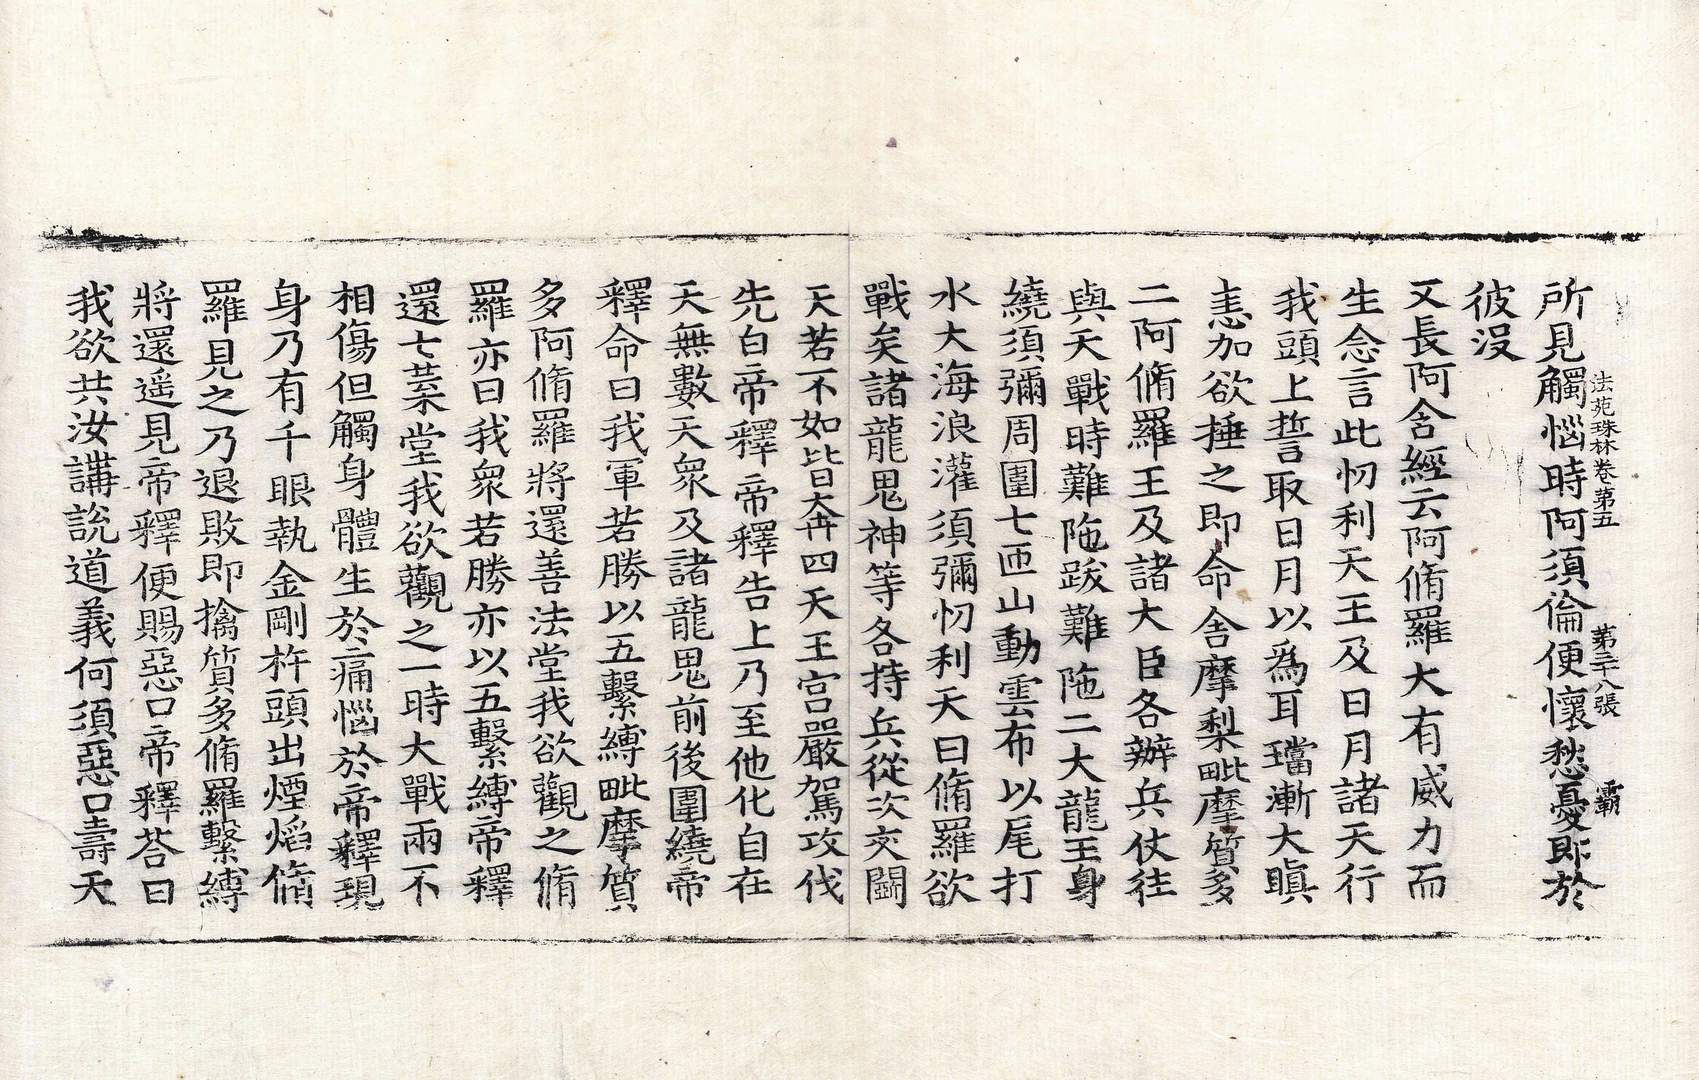 法苑珠林卷第五 第三十八張 霸
所見觸惱時阿須倫便懷愁憂即於
彼沒
又長阿含經云阿脩羅大有威力而
生念言此忉利天王及日月諸天行
我頭上誓取日月以為耳璫漸大瞋
恚加欲捶之即命舍摩梨毗摩質多
二阿脩羅王及諸大臣各辦兵仗往
與天戰時難陁跋難陁二大龍王身
繞須彌周圍七匝山動雲布以尾打
水大海浪灌須彌忉利天曰脩羅欲
戰矣諸龍鬼神等各持兵從次交鬪
天若不如皆大奔四天王宮嚴駕攻伐
先白帝釋帝釋告上乃至他化自在
天無數天衆及諸龍鬼前後圍繞帝
釋命曰我軍若勝以五繫縛毗摩質
多阿脩羅將還善法堂我欲觀之脩
羅亦曰我衆若勝亦以五繫縛帝釋
還七葉堂我欲觀之一時大戰兩不
相傷但觸身體生於痛惱於帝釋現
身乃有千眼執金剛杵頭出煙焰脩
羅見之乃退敗即擒質多脩羅繫縛
將還遥見帝釋便賜惡口帝釋荅曰
我欲共汝講說道義何須惡口壽天